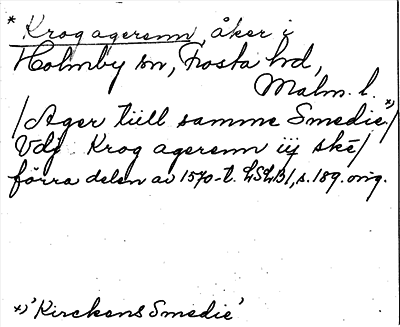 * Krog agerenn, åker i
Holmby sn, Frosta hd,
Malm. l.
/Ager tiill samme Smedie *)/
Vdj Krog agerenn iij ske/
förra delen av 1570-t. LSLB1, s. 189. orig.
*) 'Kirckens Smedie'